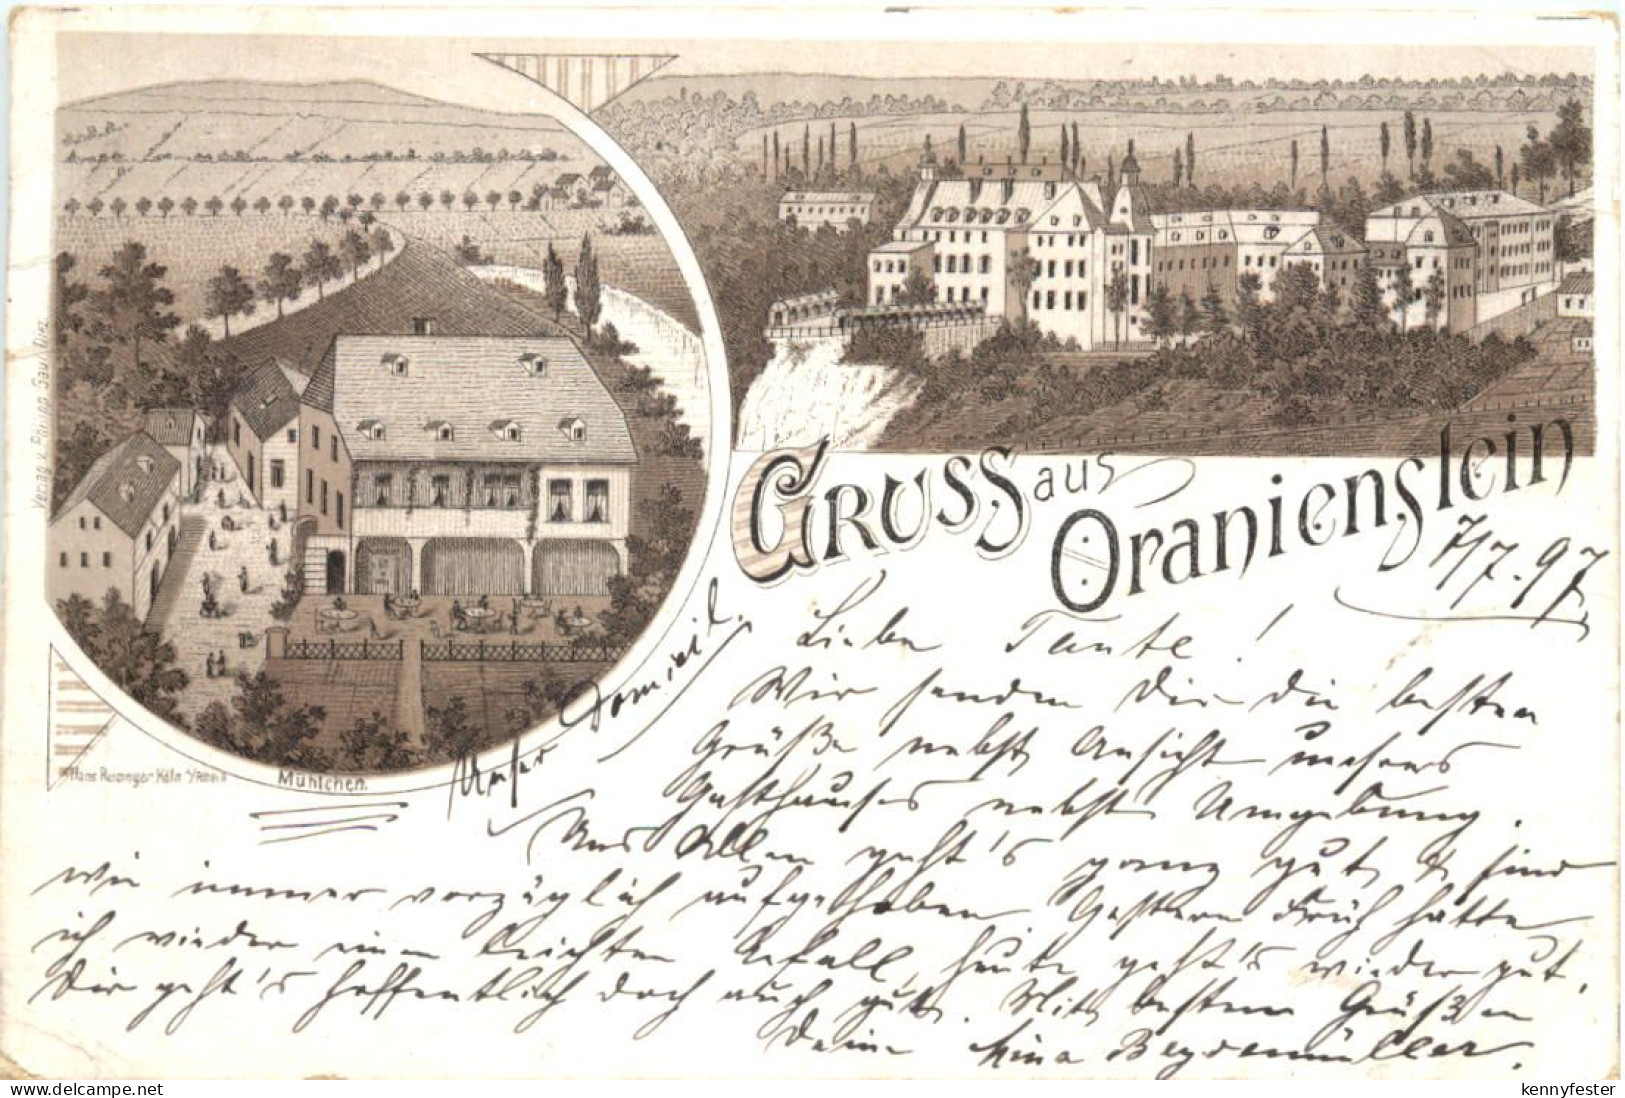 GRUSS aus
Oranienstein
7/7. 97
Liebe Tante!
Wir senden Dir die besten
Grüße nebst Ansicht unseres
Gasthauses nebst Umgebung.
Uns Allen geht's ganz gut & sind
wie immer vorzüglich aufgehoben Gestern Früh hatte
ich wieder einen leichten Anfall, heute geht's wieder gut.
Dir geht's hoffentlich doch auch gut. Mit besten Grüßen
Deine Mina
Unser Domicil.
Mühlchen.
Köln a/Rhein
Verlag v.
Diez
delcampe.net
kennyfester